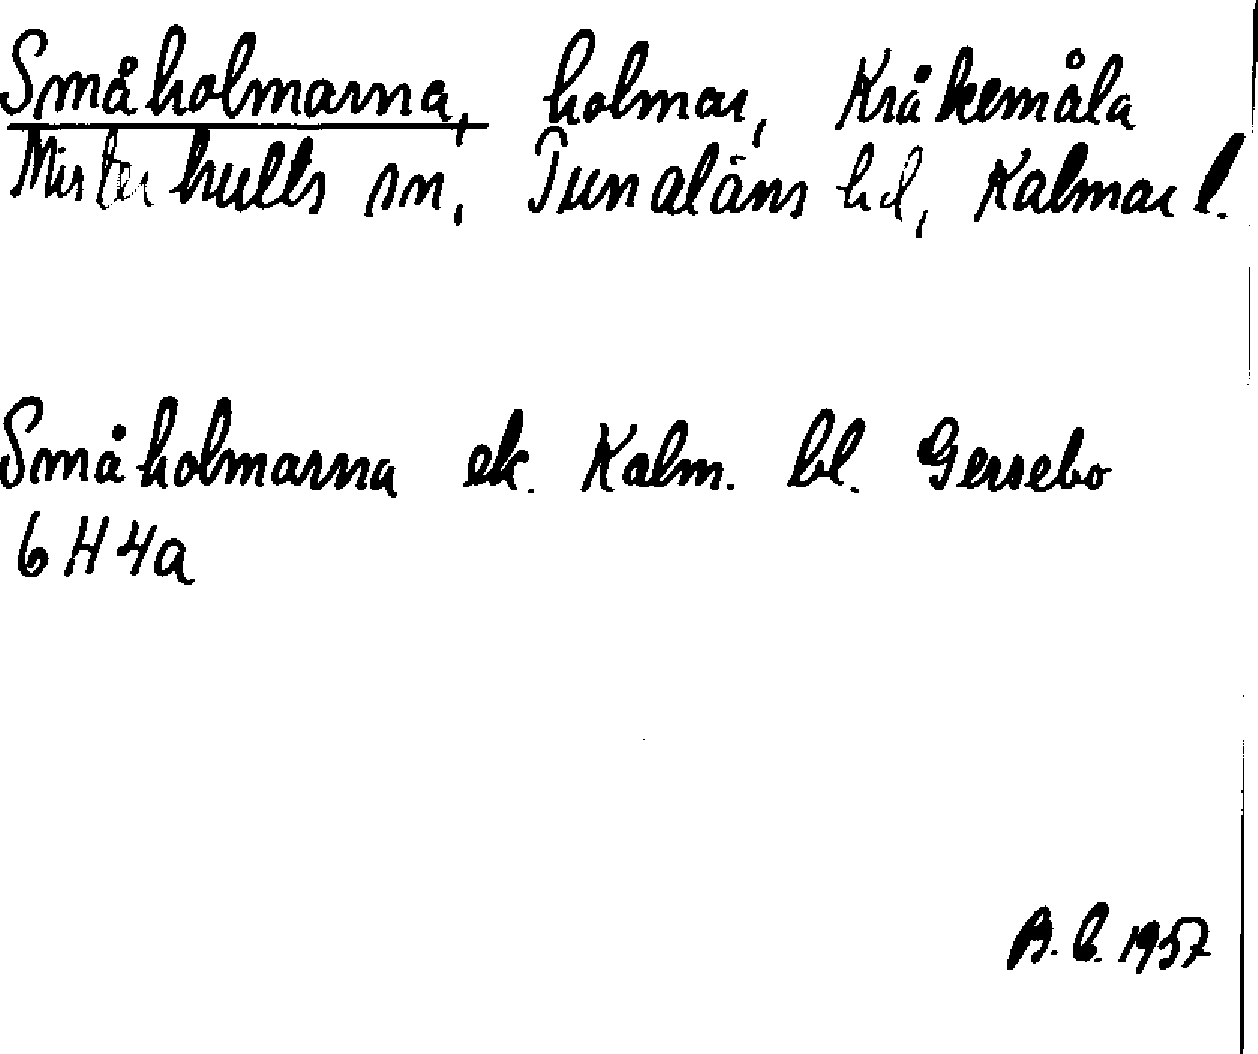 Småholmarna, holmar, Kråkemåla
Misterhults sn. Tunaläns hd, Kalmar l.
Småholmarna ek. Kalm. bl. Gersebo
6 H 4a
1957